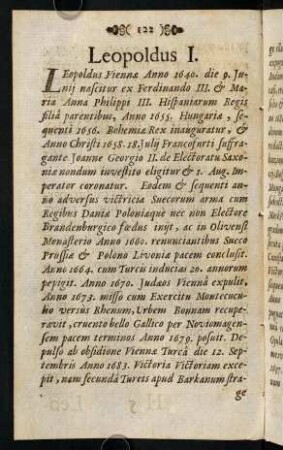 ( 122 )
Leopoldus I.
LEopoldus Viennæ Anno 1640. die 9. Ju-
nij nascitur ex Ferdinando III. & Ma-
ria Anna Philippi III. Hispaniarum Regis
filiâ parentibus, Anno 1655. Hungaria, se-
quenti 1656. Bohemiæ Rex inauguratur, &
Anno Christi 1658. 18. Julij Francofurti suffra-
gante Joanne Georgio II. de Electoratu Saxo-
niæ nondum investito eligitur & 1. Aug. Im-
perator coronatur. Eodem & sequenti an-
no adversus victricia Suecorum arma cum
Regibus Daniæ Poloniæque nec non Electore
Brandenburgico fœdus injt, ac in Olivensi
Monasterio Anno 1660. renunciantibus Sueco
Prussiæ & Polono Livonia pacem conclusit.
Anno 1664. cum Turcis inducias 20. annorum
pepigit. Anno 1670. Judæos Viennâ expulit,
Anno 1673. misso cum Exercitu Montecucu-
lio versus Rhenum, Urbem Bonnam recupe-
ravit, cruento bello Gallico per Noviomagen-
sem pacem terminos Anno 1679. posuit. De-
pulso ab obsidione Viennæ Turcâ die 12. Sep-
tembris Anno 1683. Victoria Victoriam exce-
pit, nam secundâ Turcis apud Barkanum stra-
ge